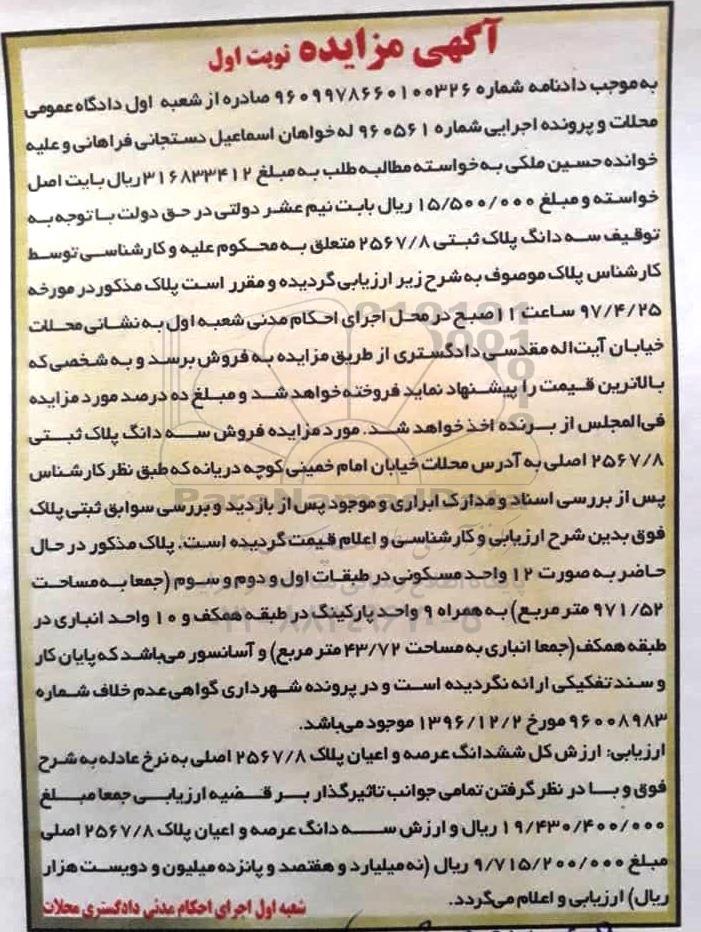 آگهی مزایده نوبت اول
به موجب دادنامه شماره ۹۶۰۹۹۷۸۶۶۰۱۰۰۳۲۶ صادره از شعبه اول دادگاه عمومی
محلات و پرونده اجرایی شماره ۹۶۰۵۶۱ له خواهان اسماعیل دستجانی فراهانی و علیه
خوانده حسین ملکی به خواسته مطالبه طلب به مبلغ ۳۱۶۸۳۳۴۱۲ ریال بابت اصل
خواسته و مبلغ ۱۵/۵۰۰/۰۰۰ ریال بابت نیم عشر دولتی در حق دولت با توجه به
توقیف سه دانگ پلاک ثبتی ۲۵۶۷/۸ متعلق به محکوم علیه و کارشناسی توسط
کارشناس پلاک موصوف به شرح زیر ارزیابی گردیده و مقرر است پلاک مذکور در مورخه
۹۷/۴/۲۵ ساعت ۱۱ صبح در محل اجرای احکام مدنی شعبه اول به نشانی محلات
خیابان آیت‌اله مقدسی دادگستری از طریق مزایده به فروش برسد و به شخصی که
بالاترین قیمت را پیشنهاد نماید فروخته خواهد شد و مبلغ ده درصد مورد مزایده
فی‌المجلس از برنده اخذ خواهد شد. مورد مزایده فروش سه دانگ پلاک ثبتی
۲۵۶۷/۸ اصلی به آدرس محلات خیابان امام خمینی کوچه دریانه که طبق نظر کارشناس
پس از بررسی اسناد و مدارک ابرازی و موجود پس از بازدید و بررسی سوابق ثبتی پلاک
فوق بدین شرح ارزیابی و کارشناسی و اعلام قیمت گردیده است. پلاک مذکور در حال
حاضر به صورت ۱۲ واحد مسکونی در طبقات اول و دوم و سوم (جمعا به مساحت
۹۷۱/۵۲ متر مربع) به همراه ۹ واحد پارکینگ در طبقه همکف و ۱۰ واحد انباری در
طبقه همکف (جمعا انباری به مساحت ۴۳/۷۲ متر مربع) و آسانسور می‌باشد که پایان کار
و سند تفکیکی ارائه نگردیده است و در پرونده شهرداری گواهی عدم خلاف شماره
۹۶۰۰۸۹۸۳ مورخ ۱۳۹۶/۱۲/۲ موجود می‌باشد.
ارزیابی: ارزش کل ششدانگ عرصه و اعیان پلاک ۲۵۶۷/۸ اصلی به نرخ عادله به شرح
فوق و با در نظر گرفتن تمامی جوانب تاثیرگذار بر قضیه ارزیابی جمعا مبلغ
۱۹/۴۳۰/۴۰۰/۰۰۰ ریال و ارزش سه دانگ عرصه و اعیان پلاک ۲۵۶۷/۸ اصلی
مبلغ ۹/۷۱۵/۲۰۰/۰۰۰ ریال (نه میلیارد و هفتصد و پانزده میلیون و دویست هزار
ریال) ارزیابی و اعلام می‌گردد.
شعبه اول اجرای احکام مدنی دادگستری محلات